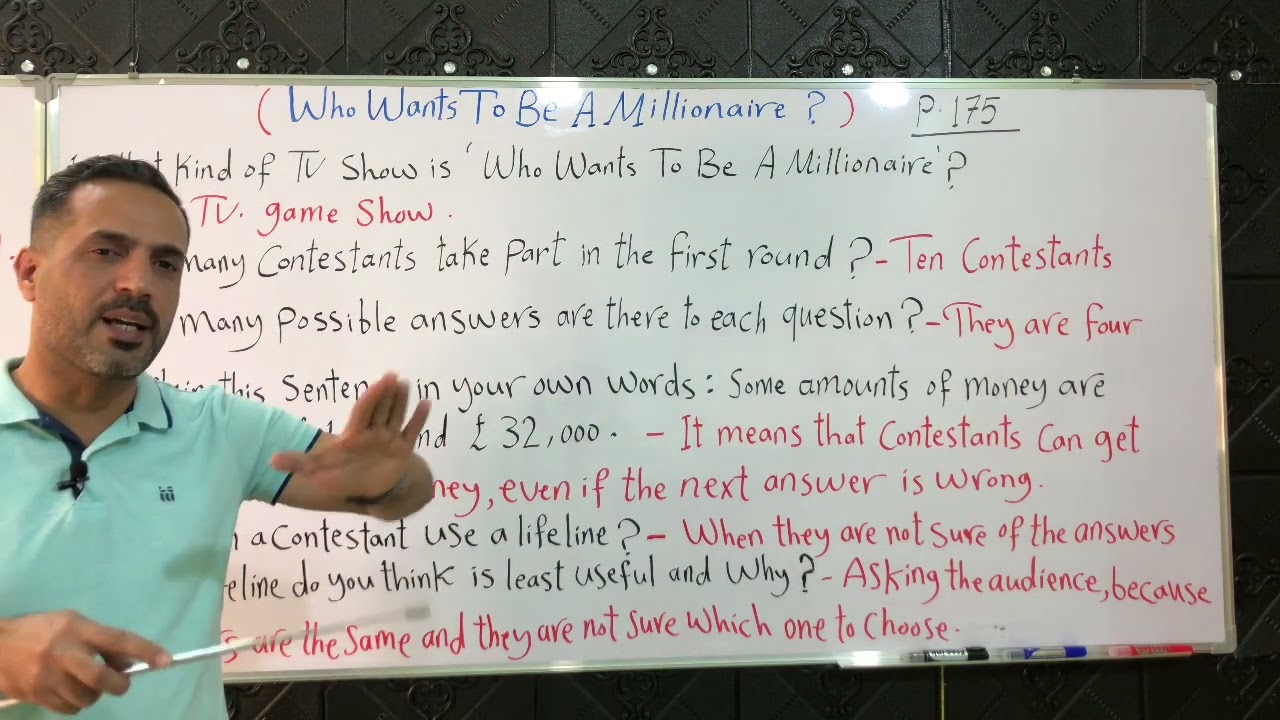 ( Who Wants To Be A Millionaire ? ) P. 175
kind of TV Show is 'Who Wants To Be A Millionaire'?
TV. game Show.
many Contestants take part in the first round ? - Ten Contestants
many possible answers are there to each question? - They are four
this Sentence in your own words: Some amounts of money are
£ 32,000. - It means that Contestants Can get
even if the next answer is wrong.
a Contestant use a lifeline? - When they are not sure of the answers
do you think is least useful and Why? - Asking the audience, because
are the Same and they are not sure which one to choose.